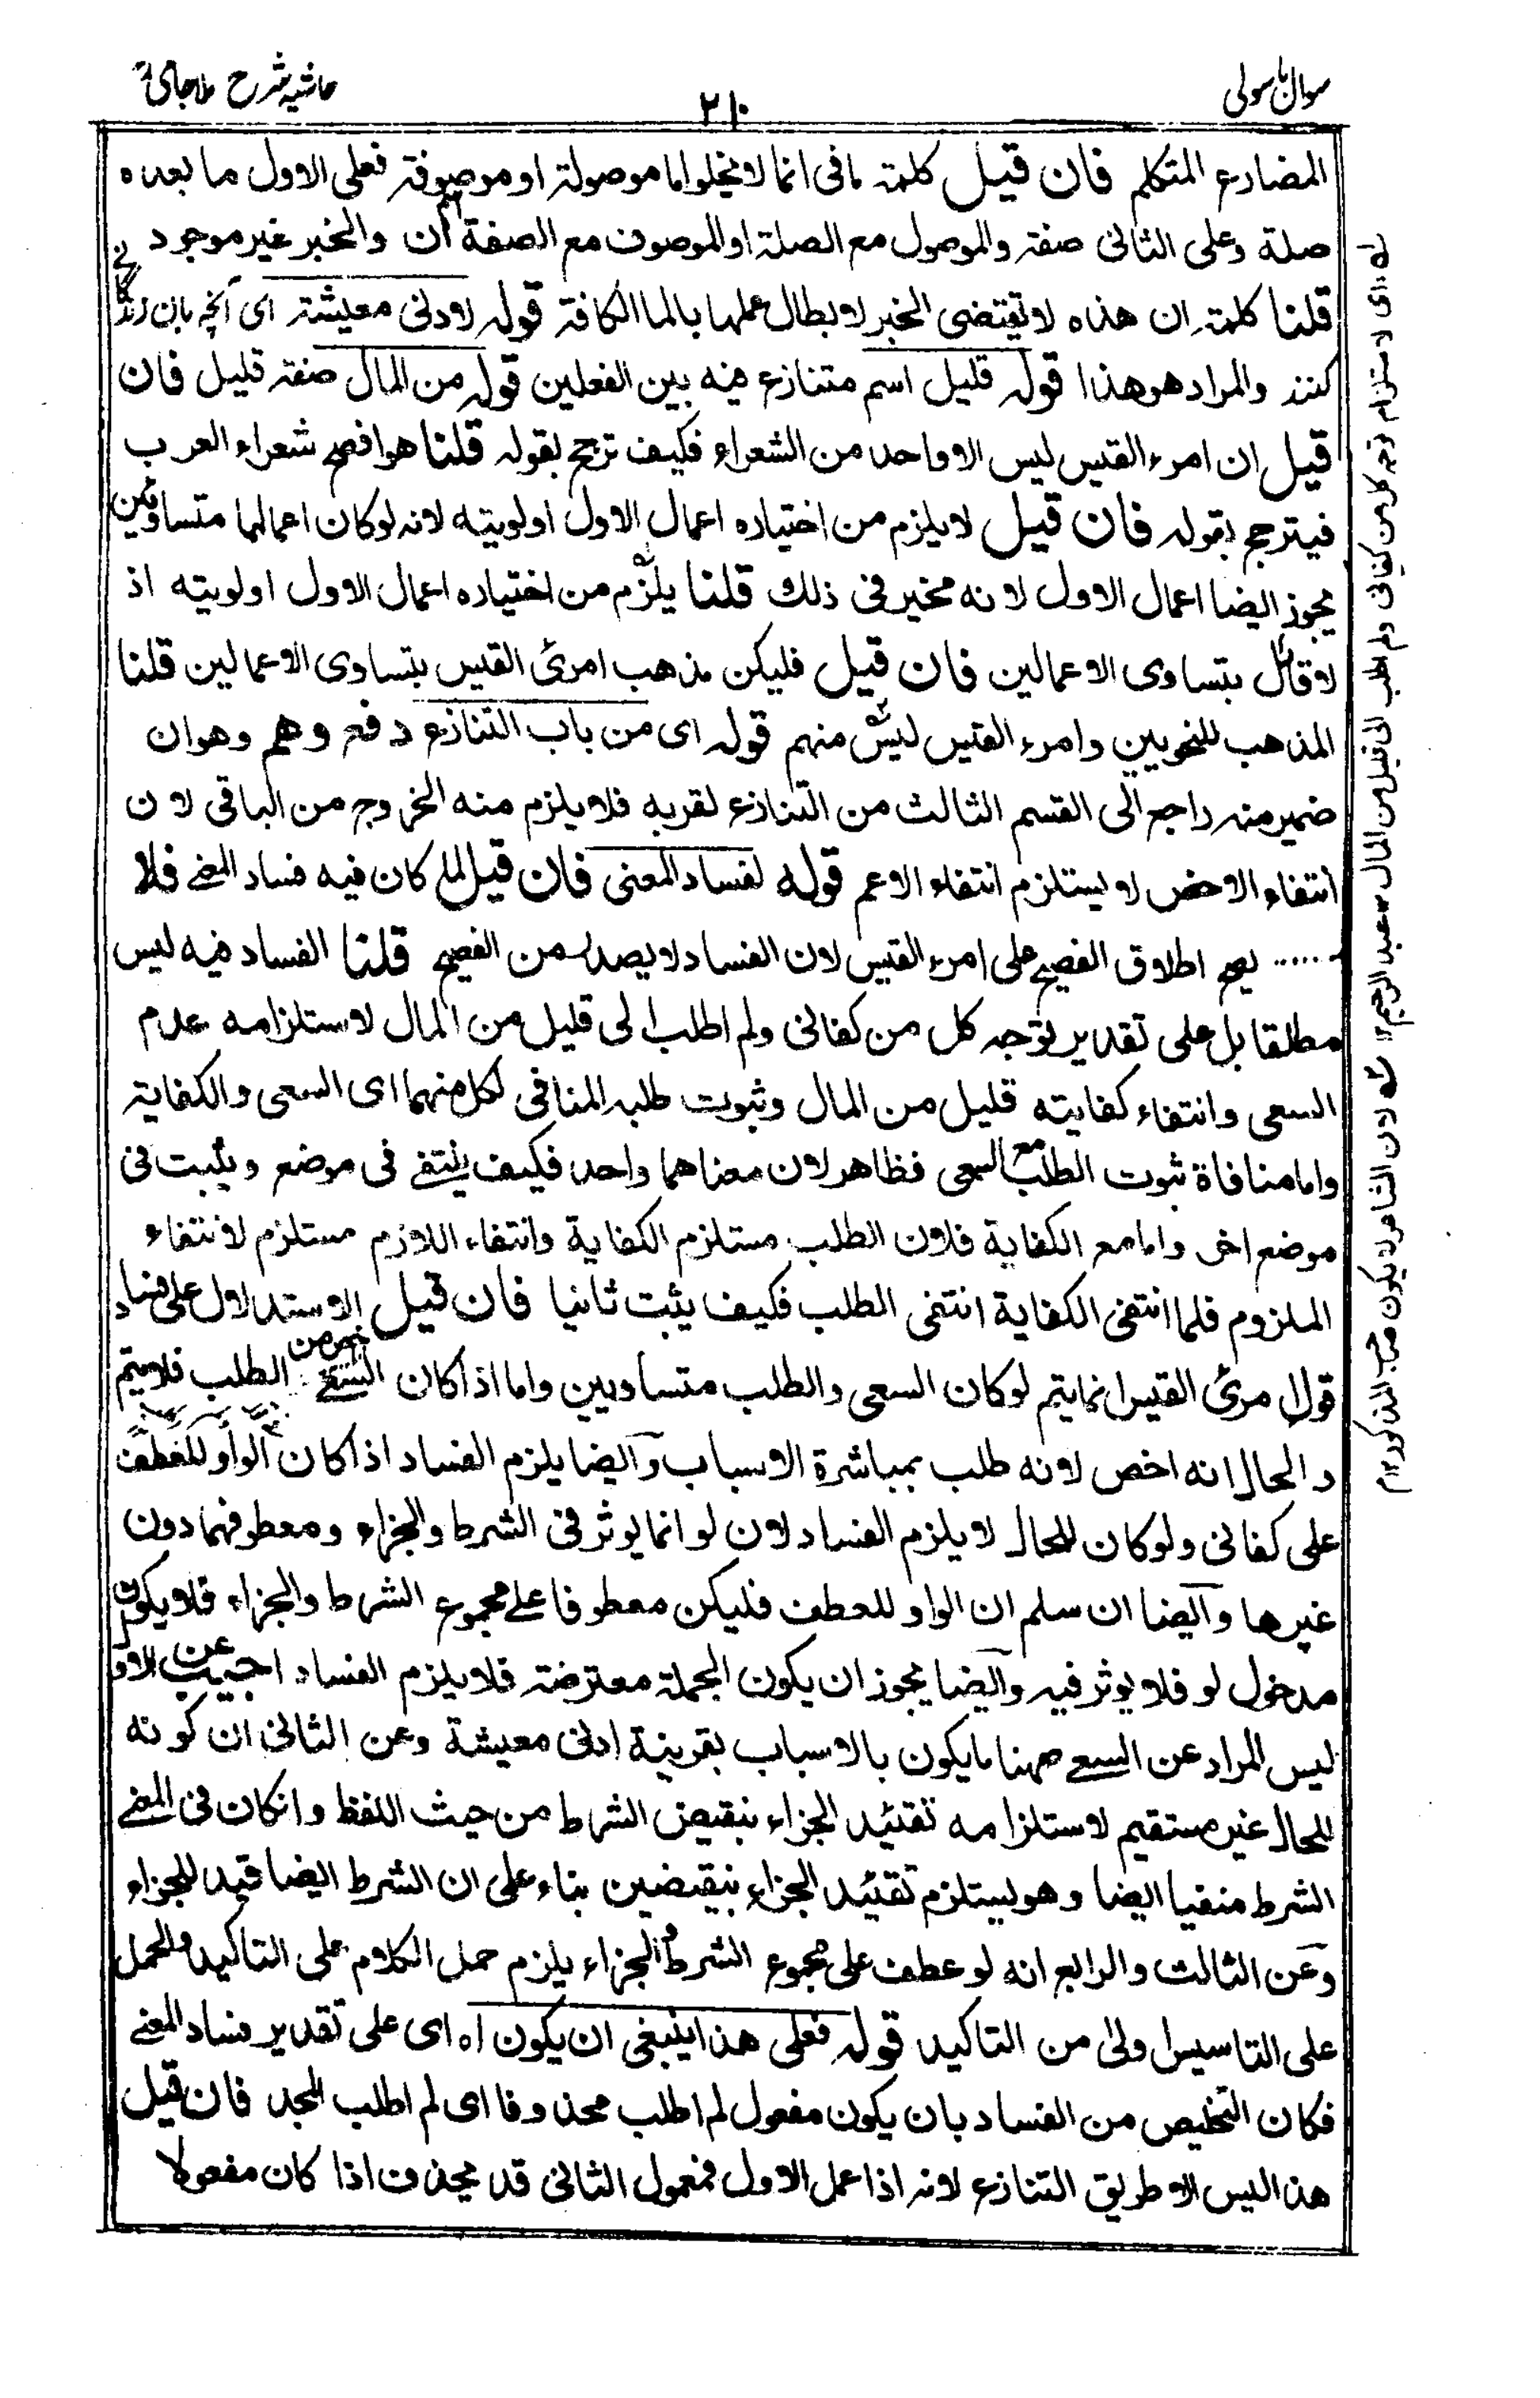 سوال باسولی
٢١٠
حاشیہ شرح ملا جامی
المضارع المتکلم فان قیل کلمة ما فی انما لا یخلوا اما موصولة او موصوفة فعلی الاول ما بعدہ
صلة وعلی الثانی صفة والموصول مع الصلة او الموصوف مع الصفة اسم ان والخبر غیر موجود
قلنا کلمة ان ھذہ لا تقتضی الخبر لا بطال عملھا بالما الکافة قولہ لادنی معیشة ای آنچہ بان زندگانی
کنند والمراد ھو ھذا قولہ قلیل اسم متنازع فیہ بین الفعلین قولہ من المال صفة قلیل فان
قیل ان امرء القیس لیس الا واحد من الشعراء فکیف ترجح بقولہ قلنا ھو افصح شعراء العرب
فیترجح بقولہ فان قیل لا یلزم من اختیارہ اعمال الاول اولویتہ لانہ لو کان اعمالھما متساویین
یجوز ایضا اعمال الاول لانہ مخیر فی ذلک قلنا یلزم من اختیارہ اعمال الاول اولویتہ اذ
لا قائل بتساوی الاعمالین فان قیل فلیکن مذھب امرئ القیس بتساوی الاعمالین قلنا
المذھب للنحویین وامرء القیس لیس منھم قولہ ای من باب التنازع دفع وھم وھو ان
ضمیر منہ راجع الی القسم الثالث من التنازع لقربہ فلا یلزم منہ الخروج من الباقی لان
انتفاء الاخص لا یستلزم انتفاء الاعم قولہ لفساد المعنی فان قیل لما کان فیہ فساد المعنے فلا
..... یصح اطلاق الفصیح علی امرء القیس لان الفساد لا یصدر من الفصیح قلنا الفساد فیہ لیس
مطلقا بل علی تقدیر توجہ کل من کفانی ولم اطلب الی قلیل من المال لاستلزامہ عدم
السعی وانتفاء کفایتہ قلیل من المال وثبوت طلبہ المنافی لکل منھما ای السعی والکفایة
واما منافاة ثبوت الطلب مع السعی فظاھر لان معناھما واحد فکیف ینتفے فی موضع ویثبت فی
موضع اخر واما مع الکفایة فلان الطلب مستلزم الکفایة وانتفاء اللازم مستلزم لانتفاء
الملزوم فلما انتفی الکفایة انتفی الطلب فکیف یثبت ثانیا فان قیل الاستدلال علی فساد
قول امرئ القیس انما یتم لو کان السعی والطلب متساویین واما اذا کان السعے اخص من الطلب فلا یتم
و الحال انہ اخص لانہ طلب بمباشرة الاسباب وایضا یلزم الفساد اذا کان الواو للعطف
علی کفانی ولو کان للحال لا یلزم الفساد لان لو انما یوثر فی الشرط والجزاء ومعطوفھما دون
غیرھا وایضا ان سلم ان الواو للعطف فلیکن معطوفا علے مجموع الشرط والجزاء فلا یکون
مدخول لو فلا یوثر فیہ وایضا یجوز ان یکون الجملة معترضة فلا یلزم الفساد اجیب عن الاول
لیس المراد عن السعے ھھنا ما یکون بالاسباب بقرینة ادنی معیشة وعن الثانی ان کونہ
للحال غیر مستقیم لاستلزامہ تقئید الجزاء بنقیض الشرط من حیث اللفظ وانکان فی المعنے
الشرط منفیا ایضا وھو یستلزم تقئید الجزاء بنقیضین بناء علی ان الشرط ایضا قید للجزاء
وعن الثالث والرابع انہ لو عطف علی مجموع الشرط والجزاء یلزم حمل الکلام علی التاکید والحمل
علی التاسیس اولی من التاکید قولہ فعلی ھذا ینبغی ان یکون اہ ای علی تقدیر فساد المعنے
فکان التخلیص من الفساد بان یکون مفعول لم اطلب محذوفا ای لم اطلب المجد فان قیل
ھذا لیس الا طریق التنازع لانہ اذا عمل الاول فمعمول الثانی قد یحذف اذا کان مفعولا
لہ ای لاستلزام توجہ کل من کفانی ولم اطلب الی قلیل من المال ۱۲ عبد الرحیم ۱۲ لان الشاعر لا یکون صاحب المذکور ۱۲ م